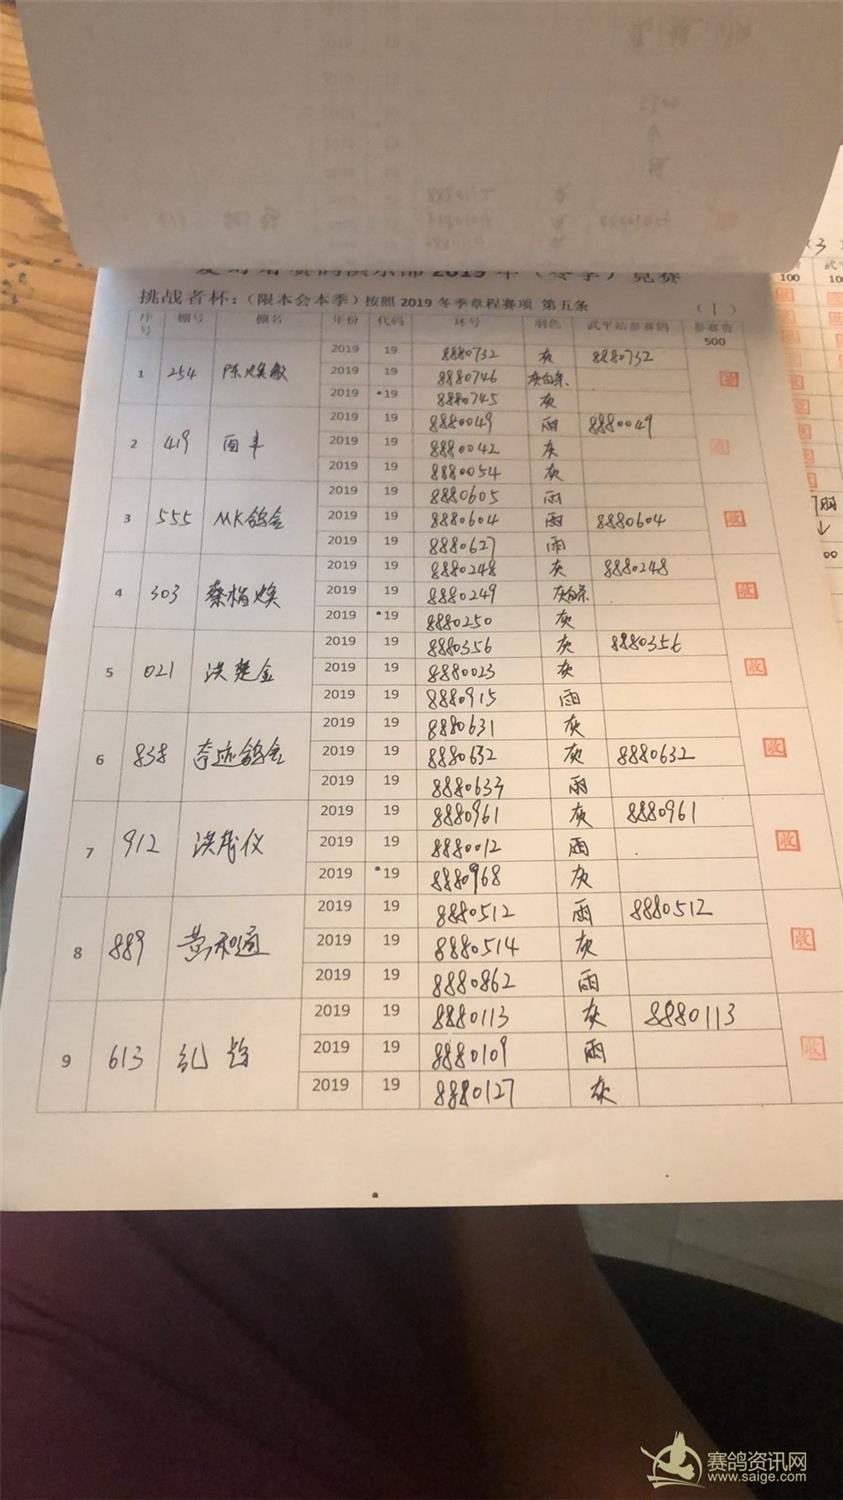 赛鸽俱乐部 2019 年（冬季）竞赛
挑战者杯：（限本会本季）按照 2019 冬季章程赛项 第五条 （1）
序号 棚号 棚名 年份 代码 环号 羽色 武平站参赛鸽 参赛费 500
1 254 陈焕敏 2019 19 8880732 灰 8880732
2019 19 8880746 灰白条
2019 19 8880745 灰
2 419 2019 19 8880049 雨 8880049
2019 19 8880042 灰
2019 19 8880054 灰
3 555 MK鸽舍 2019 19 8880605 雨
2019 19 8880604 雨 8880604 收
2019 19 8880627 雨
4 303 2019 19 8880248 灰 8880248
2019 19 8880249 灰白条 收
2019 19 8880250 灰
5 021 洪楚金 2019 19 8880356 灰 8880356
2019 19 8880023 灰 收
2019 19 8880915 雨
6 838 奇迹鸽舍 2019 19 8880631 灰
2019 19 8880632 灰 8880632 收
2019 19 8880633 雨
7 912 洪茂仪 2019 19 8880961 灰 8880961
2019 19 8880012 雨 收
2019 19 8880968 灰
8 889 黄和通 2019 19 8880512 雨 8880512
2019 19 8880514 灰 收
2019 19 8880862 雨
9 613 2019 19 8880113 灰 8880113
2019 19 8880109 雨 收
2019 19 8880127 灰
100
赛鸽资讯网
www.saige.com